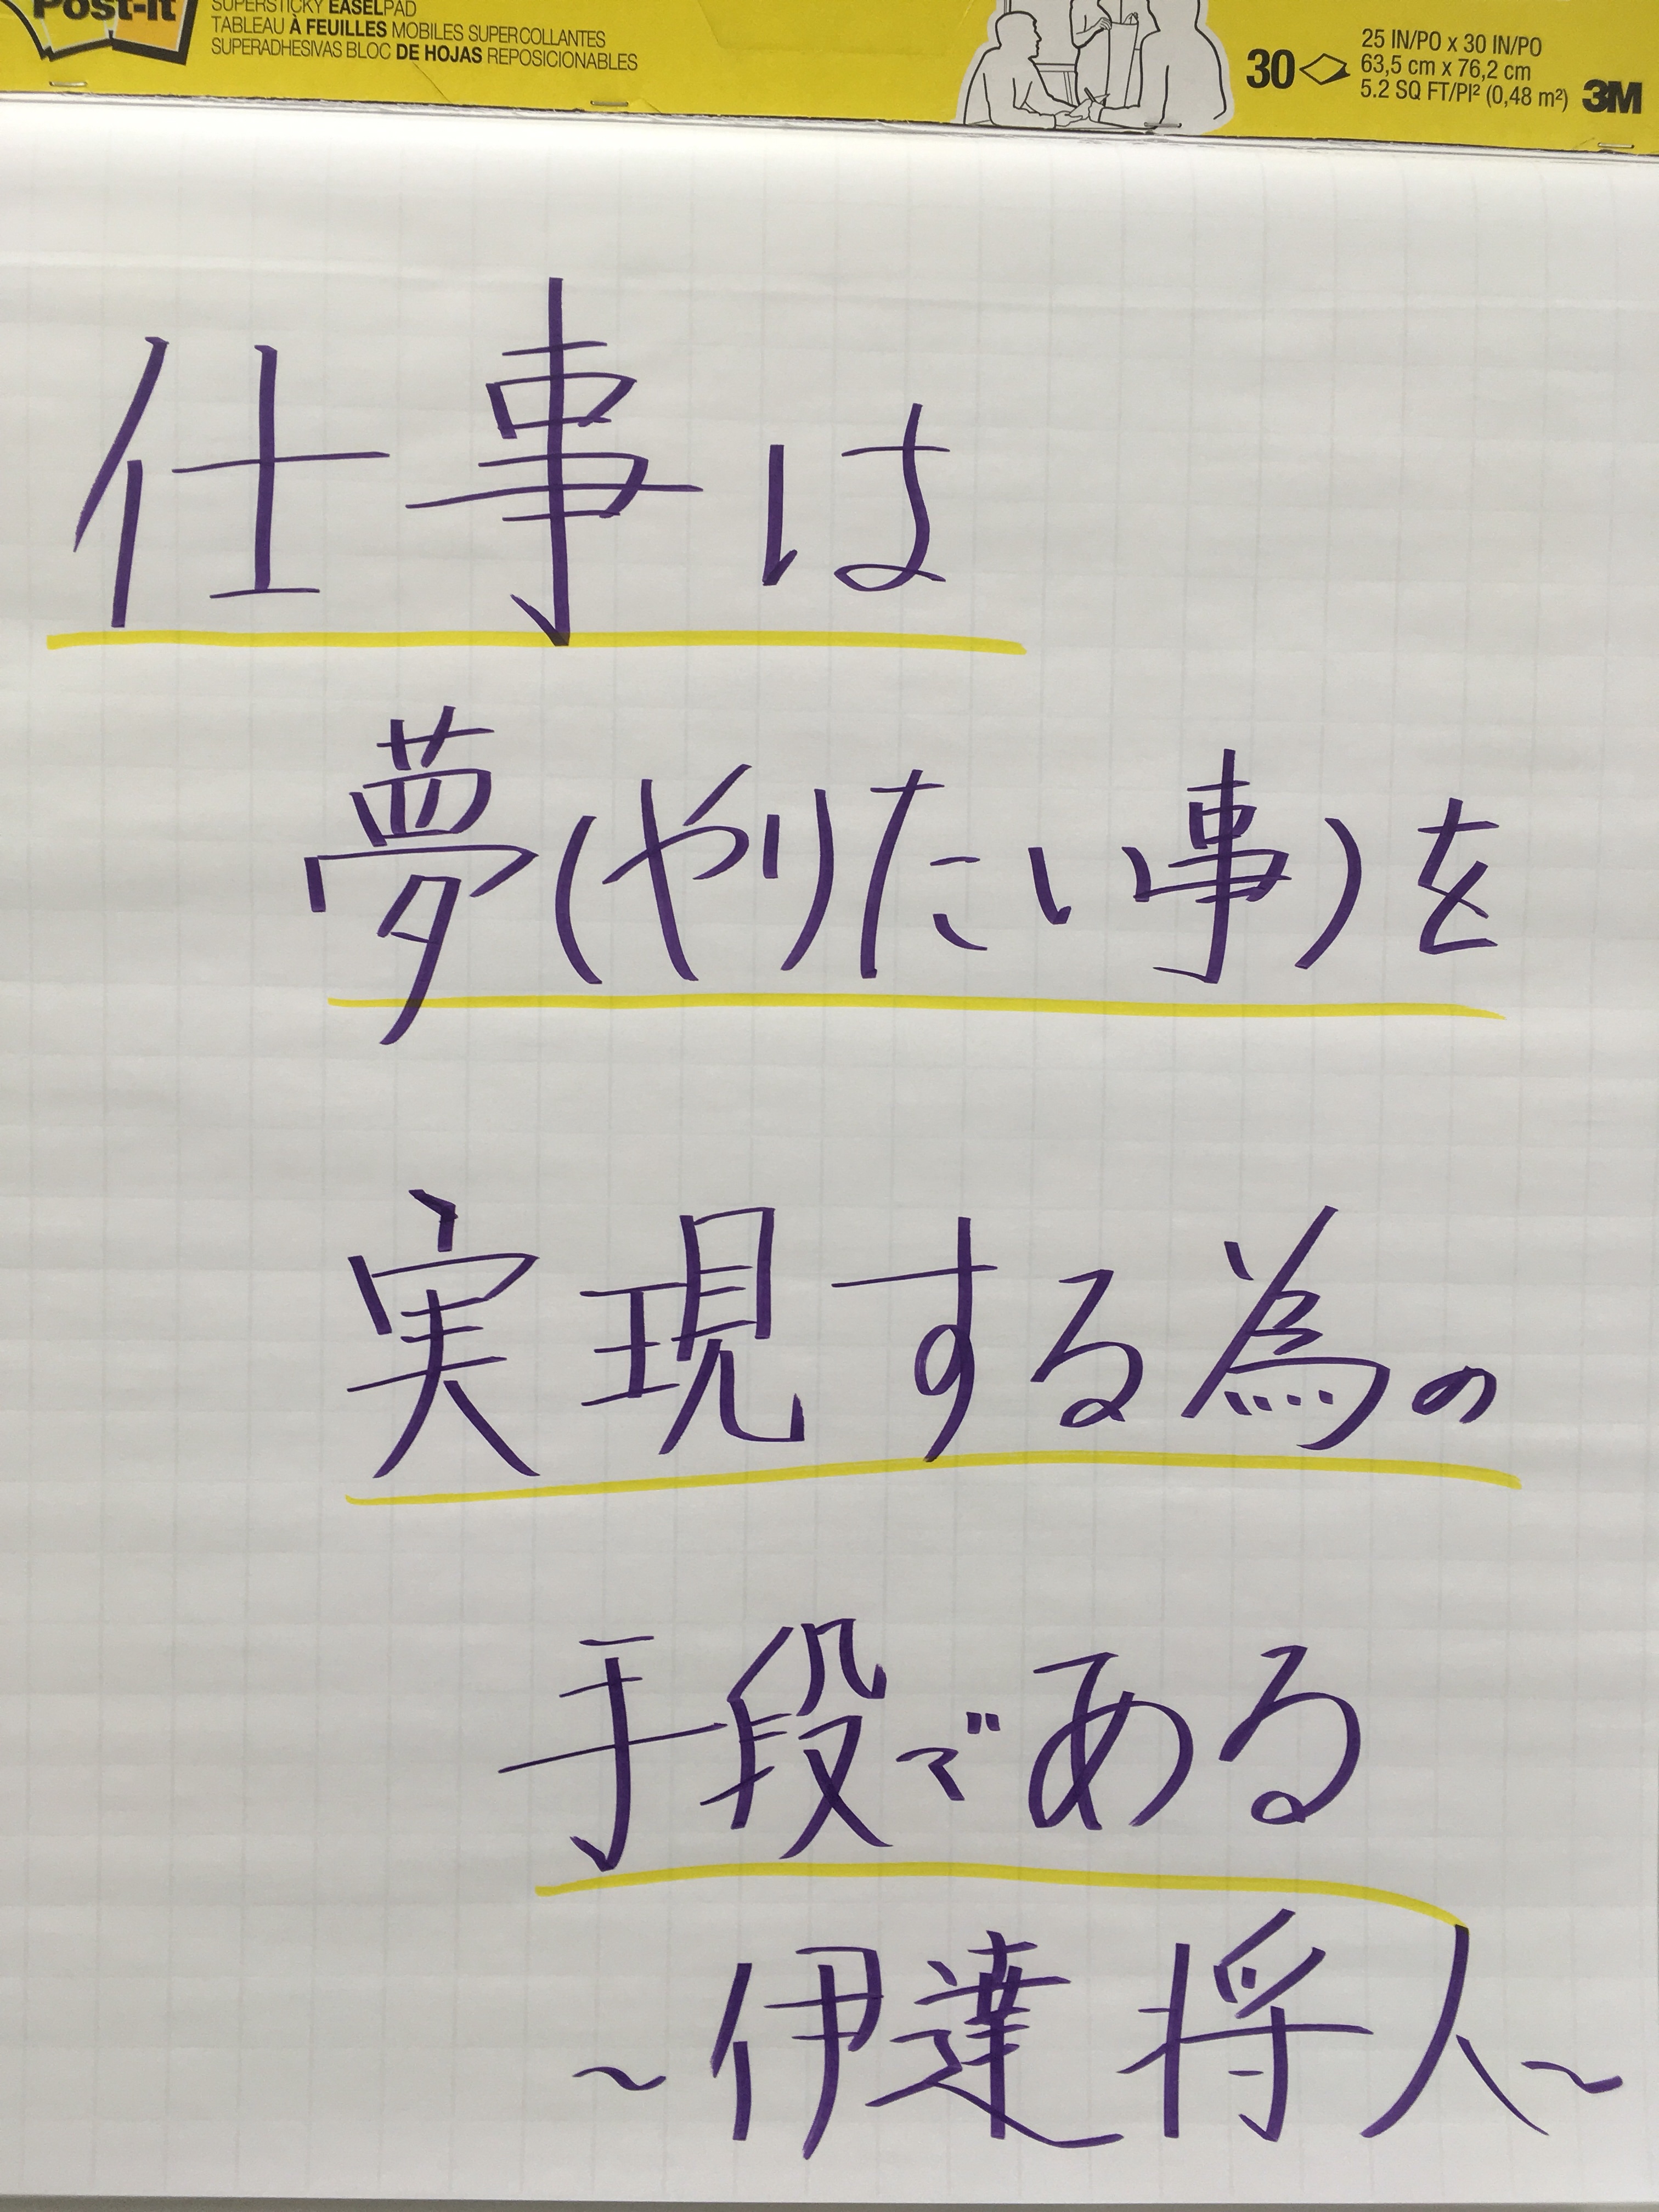 Post-it
SUPERSTICKY EASELPAD
TABLEAU À FEUILLES MOBILES SUPERCOLLANTES
SUPERADHESIVAS BLOC DE HOJAS REPOSICIONABLES
30
25 IN/PO x 30 IN/PO
63,5 cm x 76,2 cm
5.2 SQ FT/PI² (0,48 m²)
3M
仕事は
夢(やりたい事)を
実現する為の
手段である
~伊達将人~